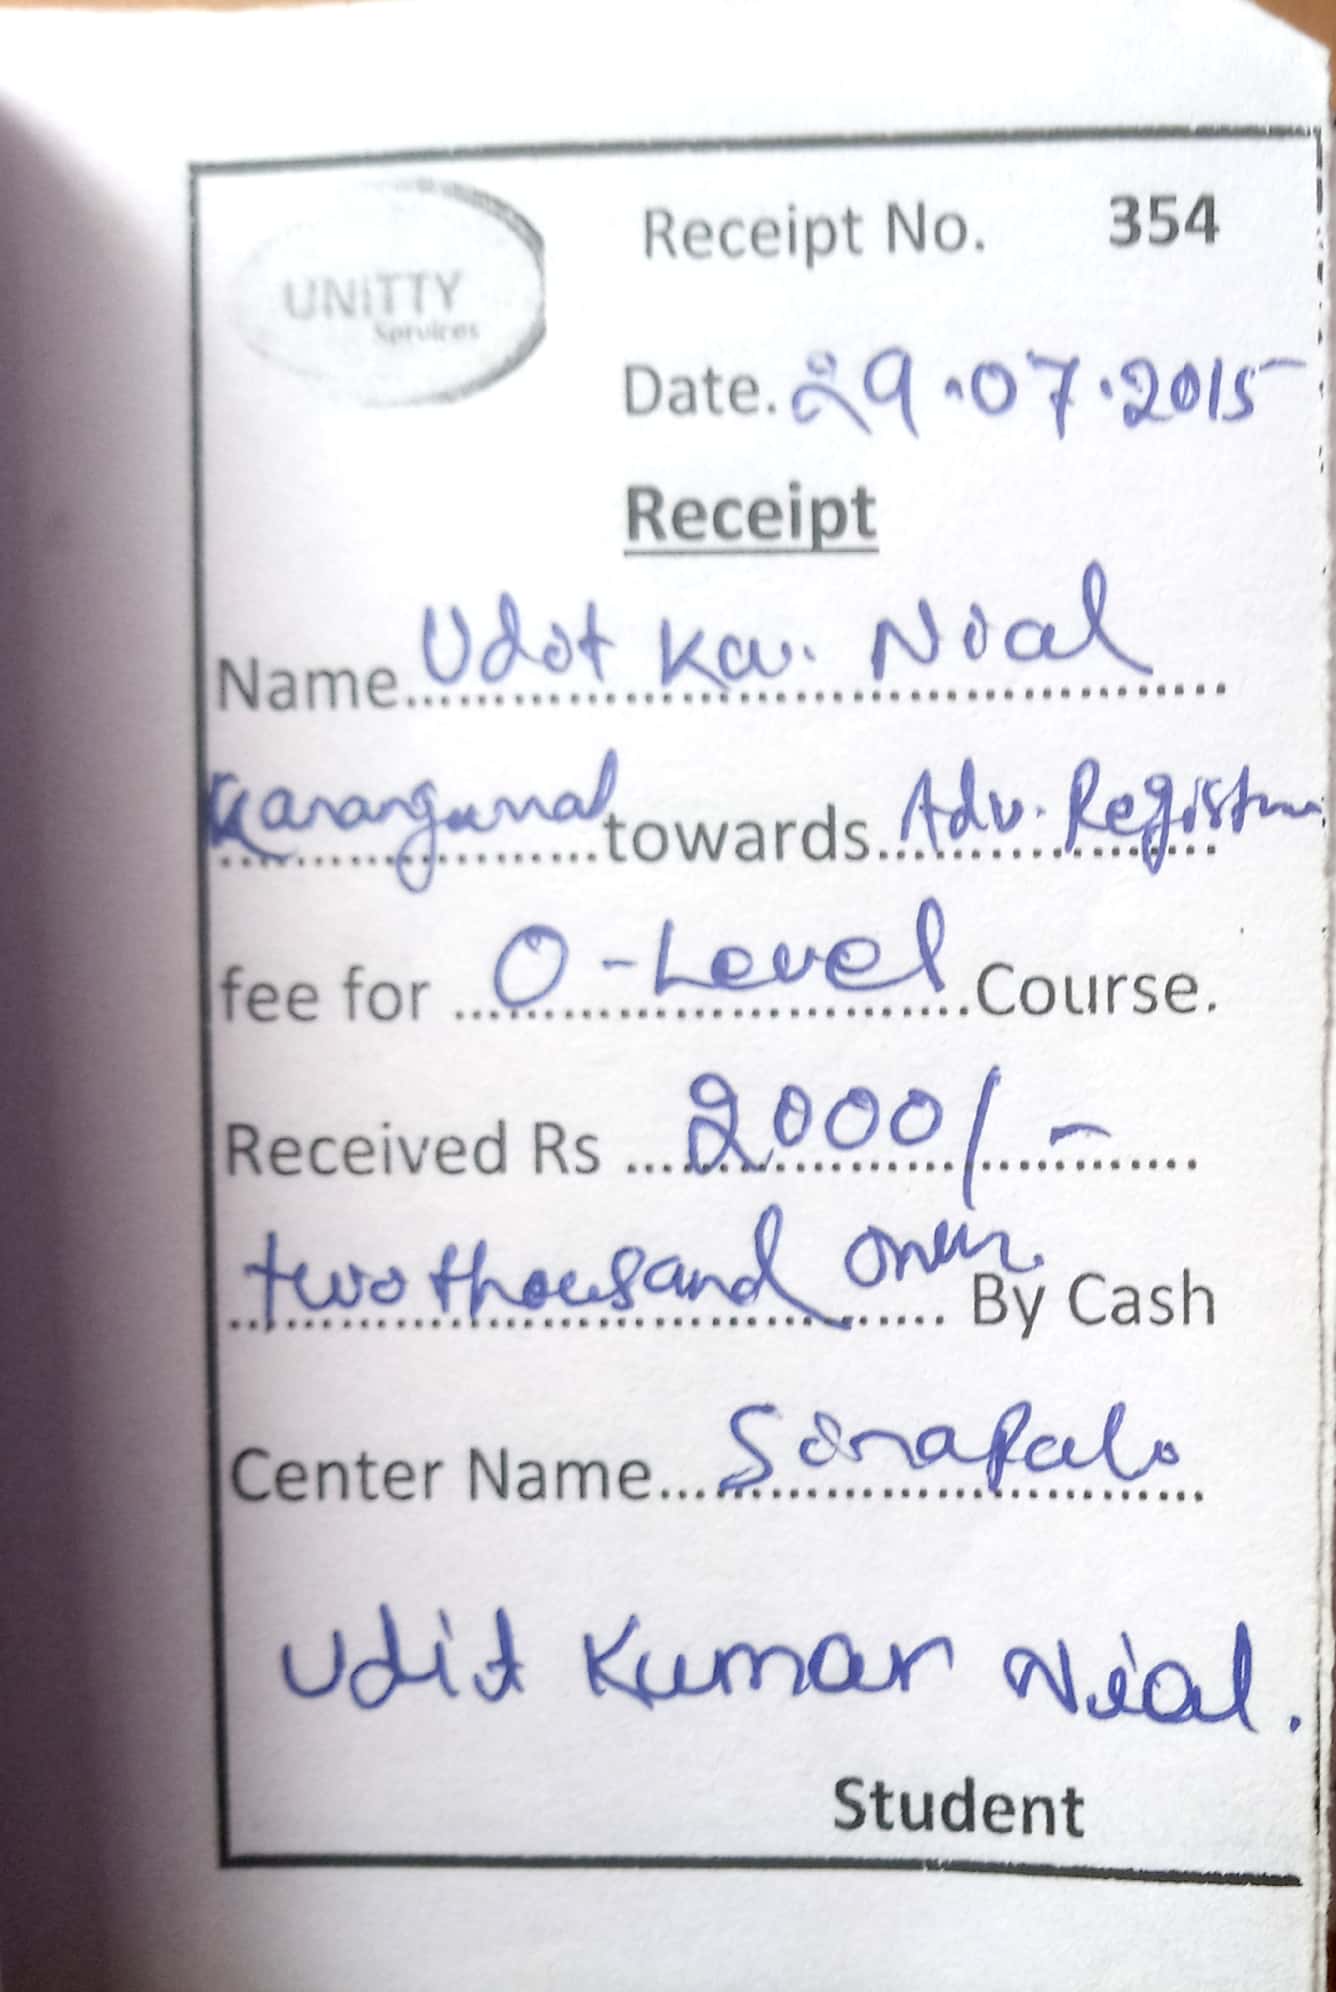 UNiTTY
Services
Receipt No. 354
Date. 29.07.2015
Receipt
Name Udit Ku. Nial
towards Adv. Registra
fee for O-Level Course.
Received Rs 2000/-
two thousand By Cash
Center Name Sinapali
Udit Kumar Nial.
Student